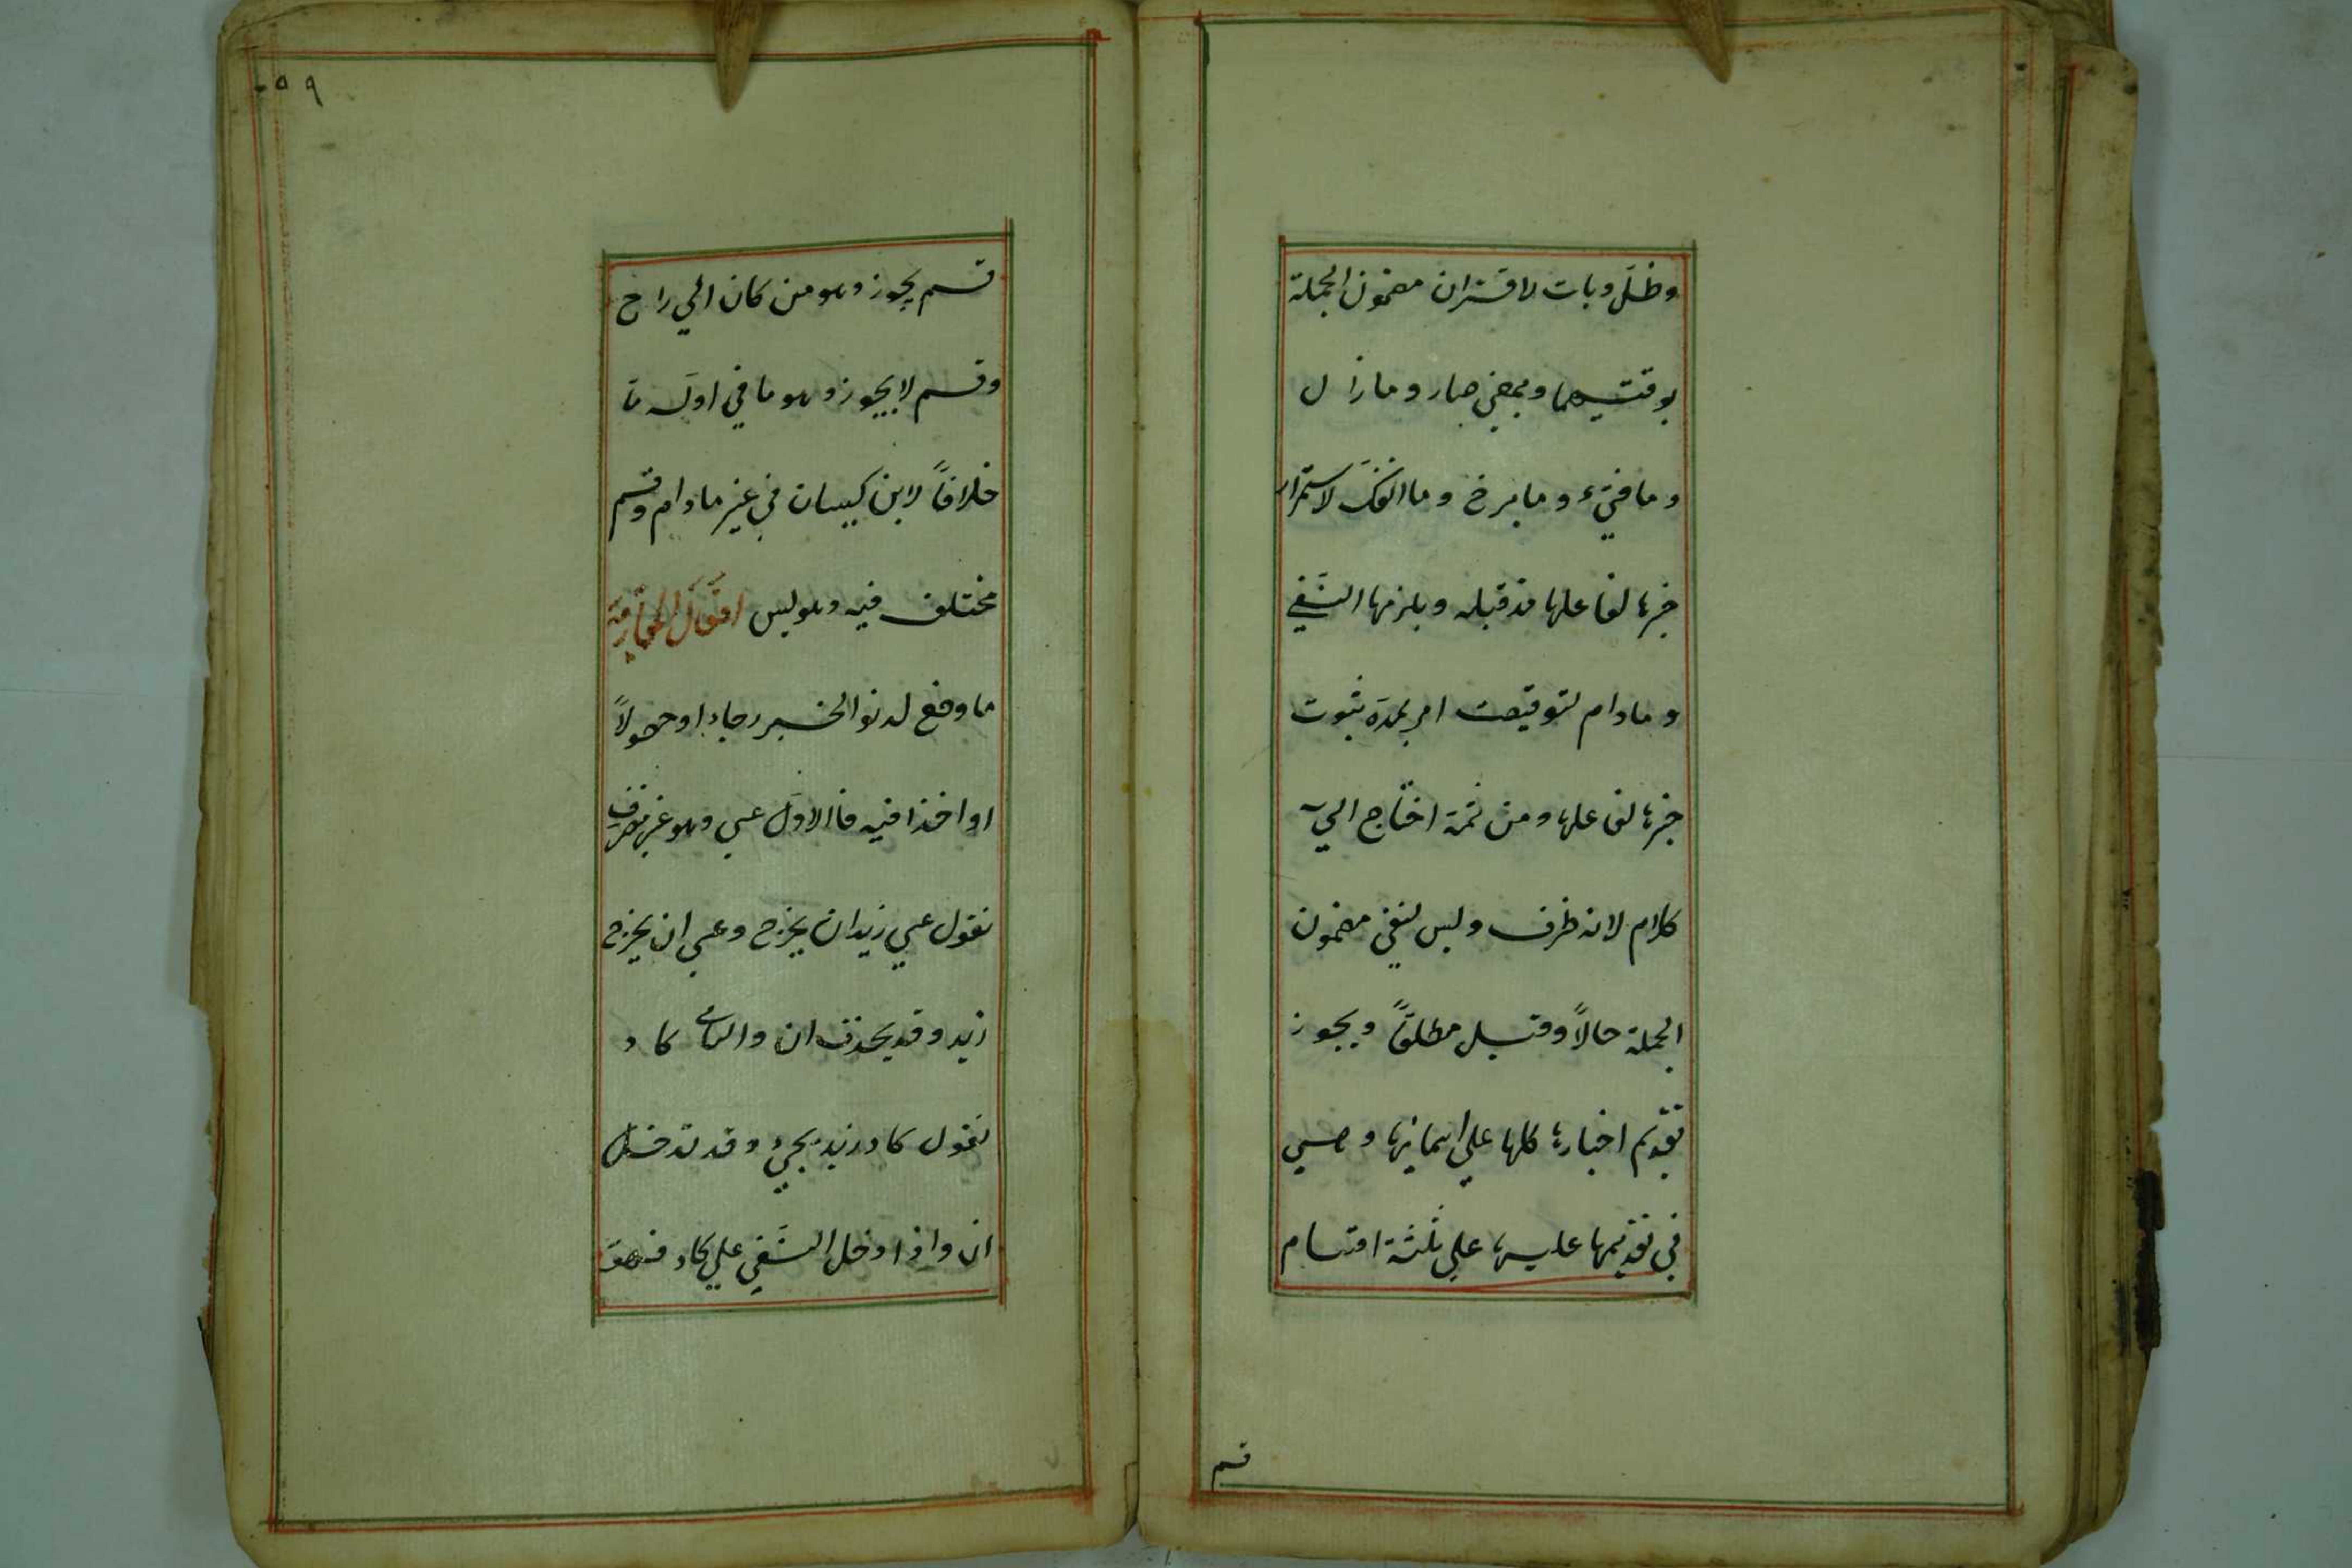 وظلّ وبات لاقتران مضمون الجملة
بوقتيهما وبمعني صار وما زال
وما فتيء وما برح وما انفكّ لاستمرار
خبرها لفاعلها مذ قبله ويلزمها النّفي
وما دام لتوقيت امر بمدّة ثبوت
خبرها لفاعلها ومن ثمة احتاج الي
كلام لانه ظرف وليس لنفي مضمون
الجملة حالاً وقيل مطلقاً ويجوز
تقديم اخبارها كلها علي اسمائها وهي
في تقديمها عليها علي ثلثة اقسام
قسم
٥٩
قسم يجوز وهو من كان الي راح
وقسم لا يجوز وهو ما في اوّله ما
خلافاً لابن كيسان في غير مادام وقسم
مختلف فيه وهو ليس افعال المقاربة
ما وضع لدنو الخبر رجاء او حصولاً
او اخذا فيه فالاوّل عسي وهو غير متصرف
تقول عسي زيد ان يخرج وعسي ان يخرج
زيد وقد يحذف ان والثاني كاد
تقول كاد زيد يجيء وقد تدخل
ان واذا دخل النّفي علي كاد فهو